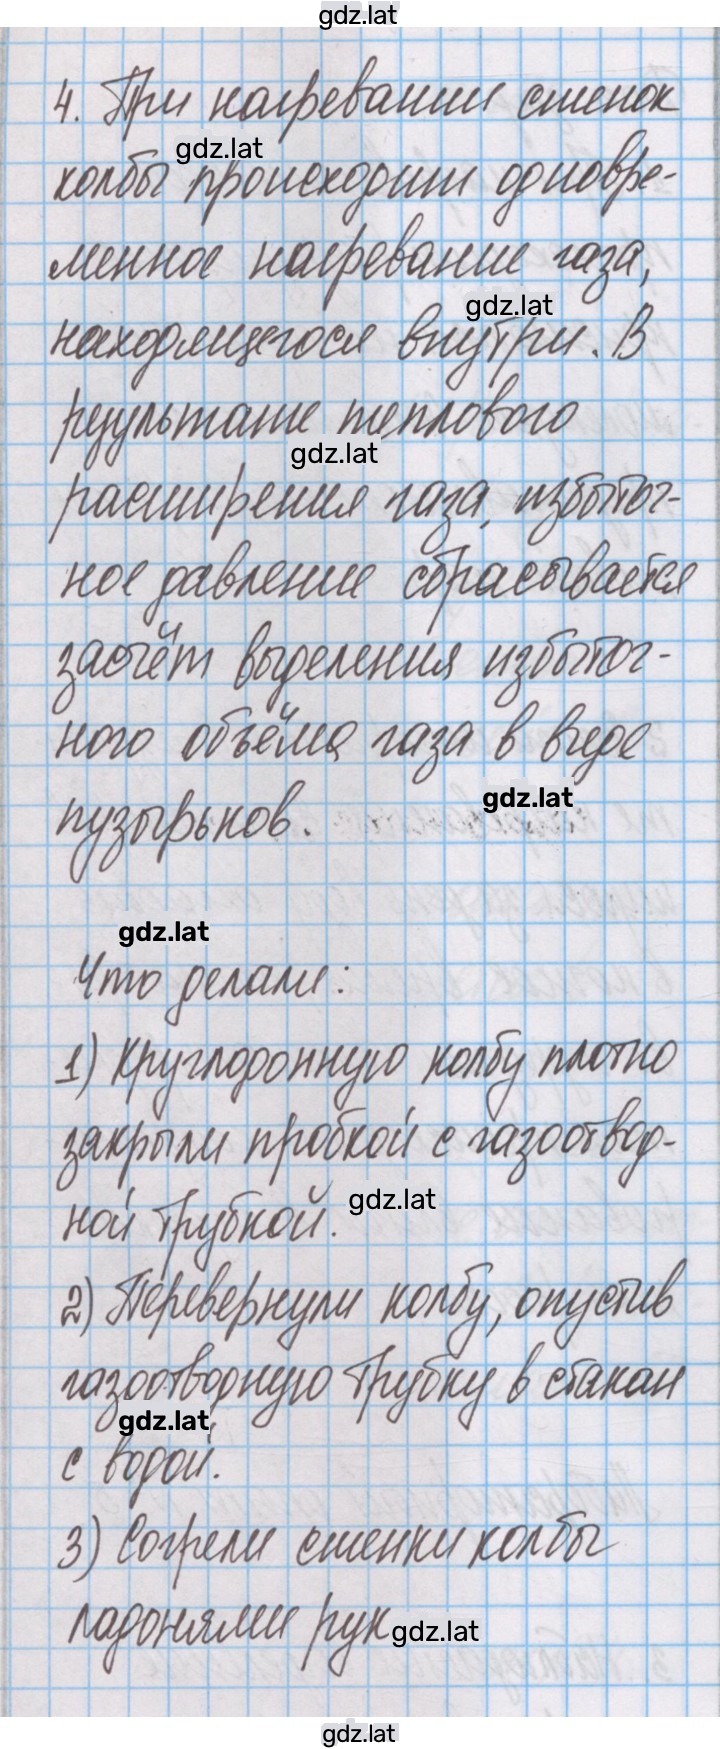 gdz.lat
4. При нагревании стенок
gdz.lat
колбы происходит одновре-
менное нагревание газа,
gdz.lat
находящегося внутри. В
результате теплового
gdz.lat
расширения газа, избыточ-
ное давление сбрасывается
засчёт выделения избыточ-
ного объёма газа в виде
gdz.lat
пузырьков.
gdz.lat
Что делали:
1) Круглодонную колбу плотно
закрыли пробкой с газоотвод-
gdz.lat
ной трубкой.
2) Перевернули колбу, опустив
газоотводную трубку в стакан
gdz.lat
с водой.
3) Согрели стенки колбы
ладонями рук
gdz.lat
gdz.lat